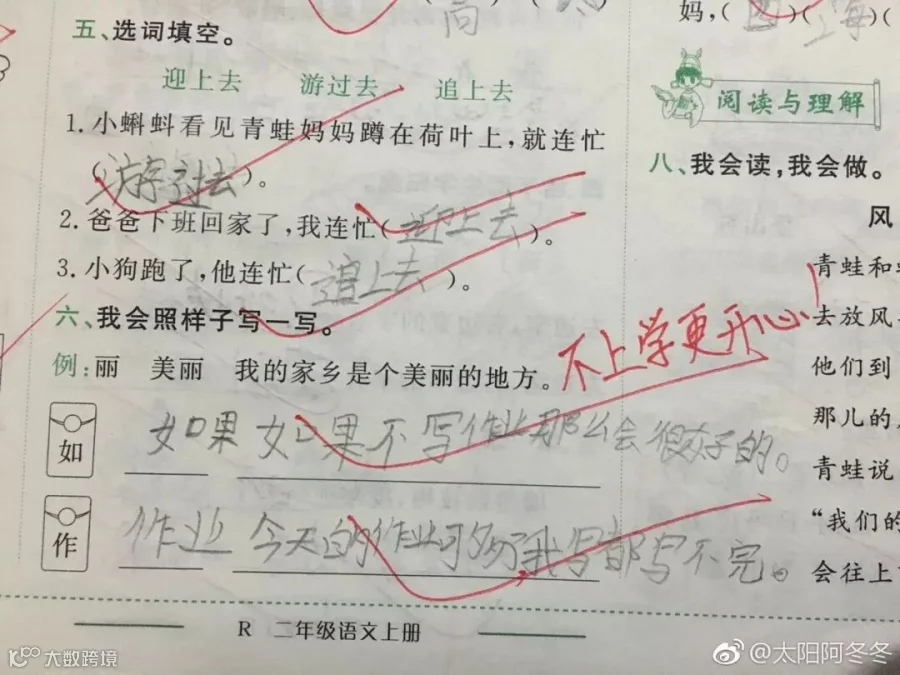 妈，( 图 )( 上海 )(
五、选词填空。
迎上去 游过去 追上去
1.小蝌蚪看见青蛙妈妈蹲在荷叶上，就连忙
(游过去)。
2.爸爸下班回家了，我连忙(迎上去)。
3.小狗跑了，他连忙(追上去)。
六、我会照样子写一写。
例：丽 美丽 我的家乡是个美丽的地方。
不上学更开心！
如 如果 如果不写作业那么会很好的。
作 作业 今天的作业可多了我写都写不完。
R 二年级语文上册
阅读与理解
八、我会读，我会做。
风
青蛙和
去放风
他们到
那儿的
青蛙说
“我们的
会往上
大数跨境
@太阳阿冬冬